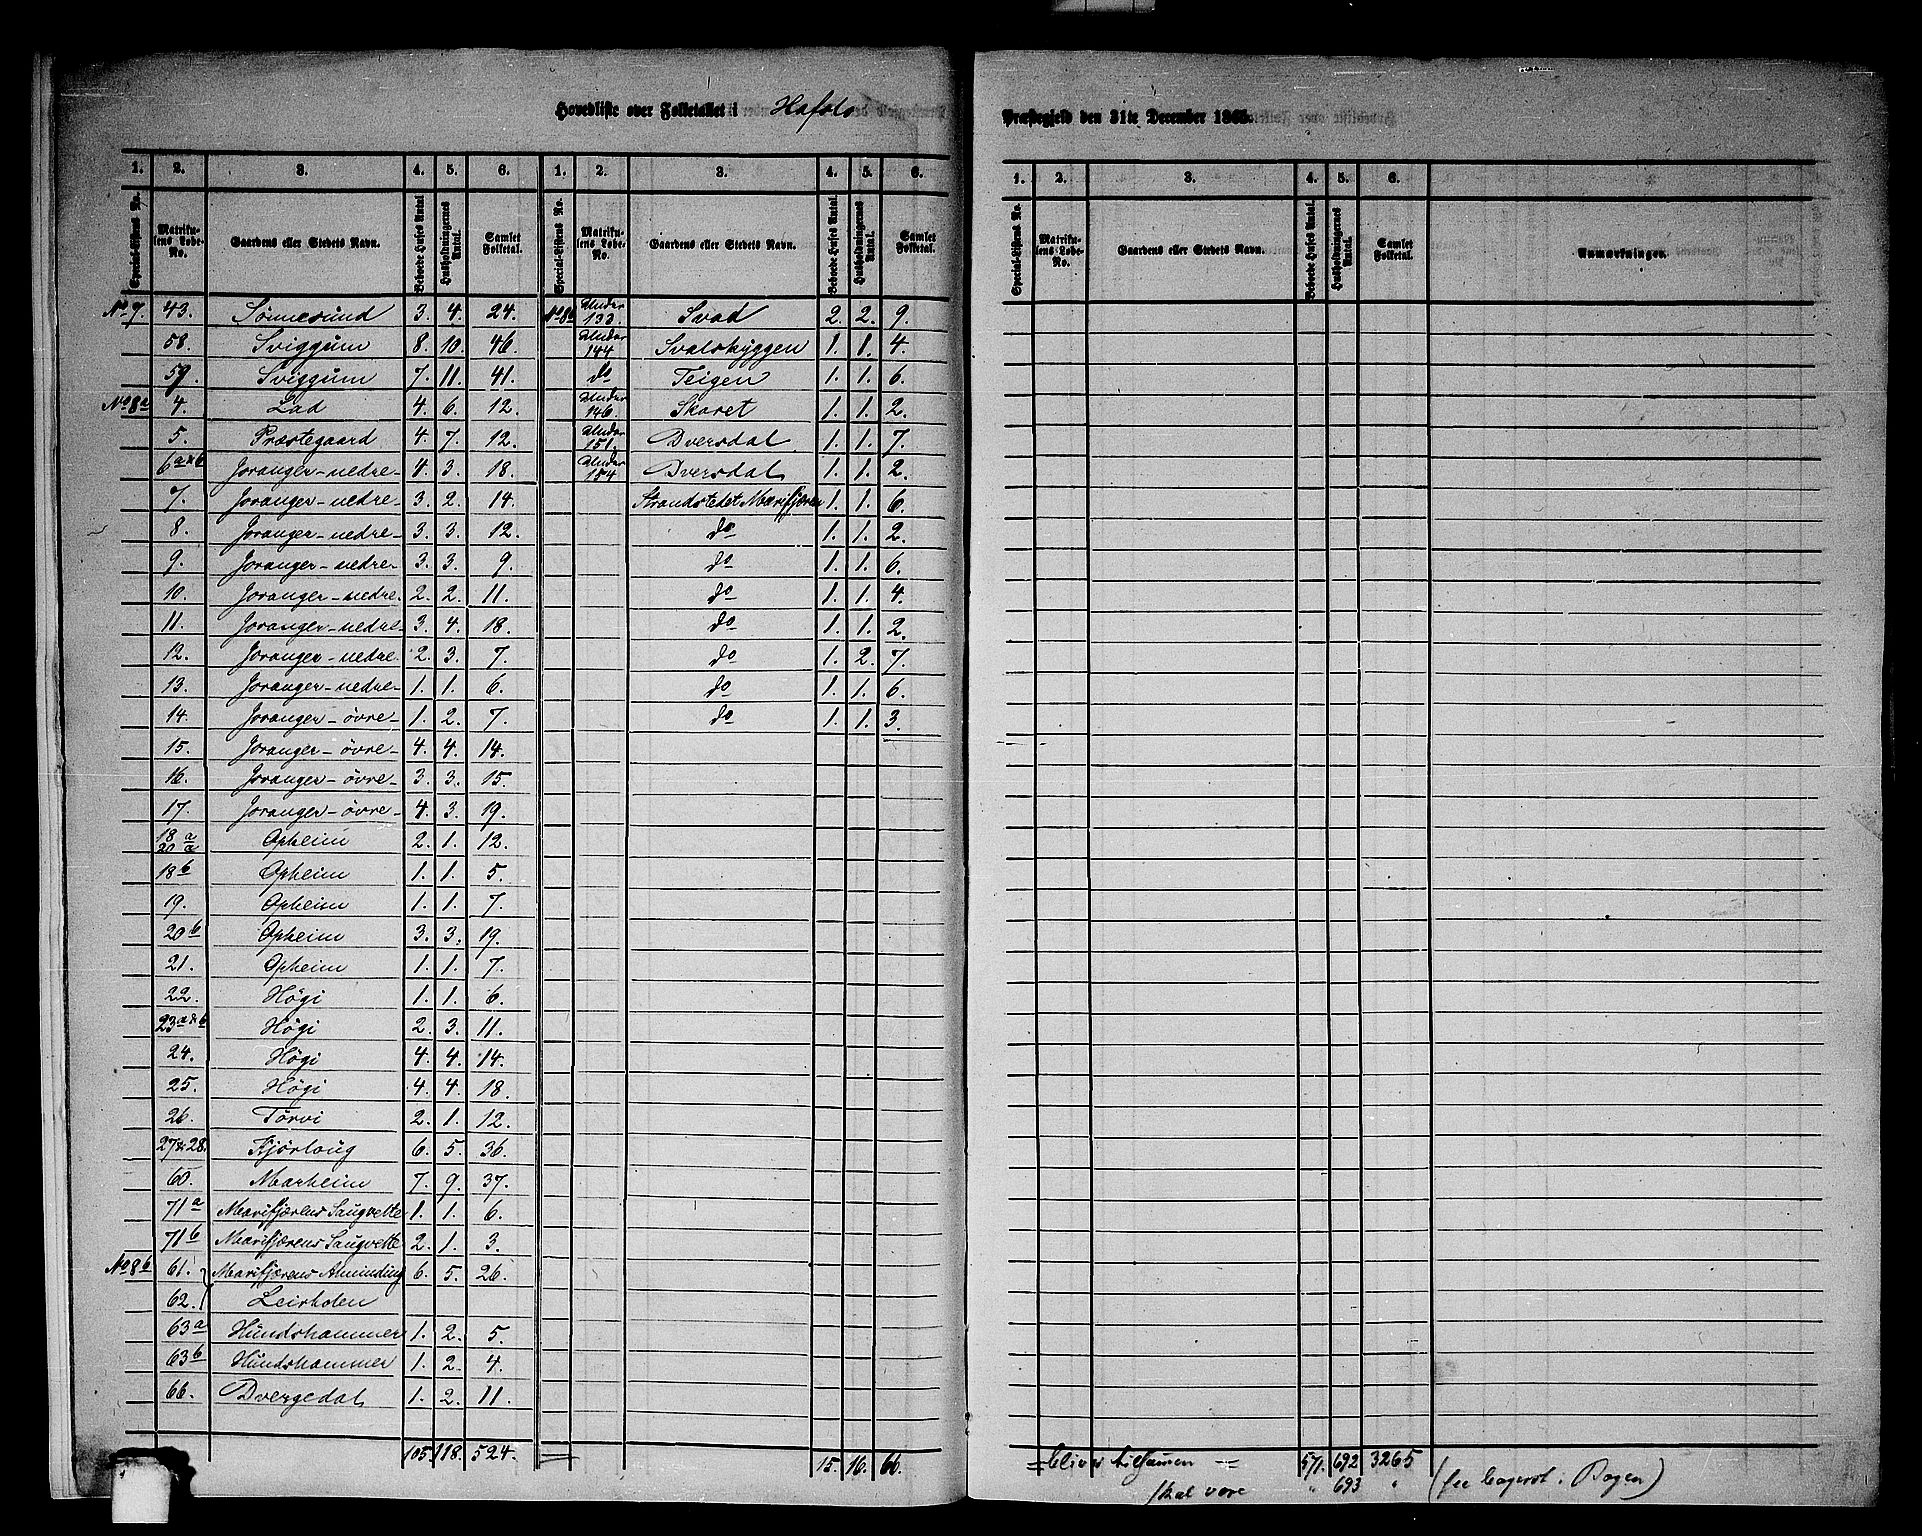 Hovedliste over Folketallet i Hafslo Præstegjeld den 31te December 1865.
1. 2. 3. 4. 5. 6. 1. 2. 3. 4. 5. 6.
Special-Listens No. Matrikulens Løbe-No. Gaardens eller Stedets Navn. Beboede Huses Antal Husholdningernes Antal. Samlet Folketal. Special-Listens No. Matrikulens Løbe-No. Gaardens eller Stedets Navn. Beboede Huses Antal. Husholdningernes Antal. Samlet Folketal.
No 7. 43. Sönnesund 3. 4. 24. No 8b Under 133. Svad 2. 2. 9.
58. Sviggum 8. 10. 46. Under 144 Svalskyggen 1. 1. 4.
59. Sviggum 7. 11. 41. do Teigen 1. 1. 6.
No 8a 4. Lad 4. 6. 12. Under 146. Skaret 1. 1. 2.
5. Præstegaard 4. 7. 12. Under 151. Dversdal 1. 1. 7.
6a&b Joranger-nedre- 4. 3. 18. Under 154 Dversdal 1. 1. 2.
7. Joranger-nedre- 3. 2. 14. Strandstedet Marifjæren 1. 1. 6.
8. Joranger-nedre- 3. 3. 12. do 1. 1. 2.
9. Joranger-nedre 3. 3. 9. do 1. 1. 6.
10. Joranger-nedre. 2. 2. 11. do 1. 1. 4.
11. Joranger-nedre- 3. 4. 18. do 1. 1. 2.
12. Joranger-nedre. 2. 3. 7. do 1. 2. 7.
13. Joranger-nedre- 1. 1. 6. do 1. 1. 6.
14. Joranger-övre- 1. 2. 7. do 1. 1. 3.
15. Joranger-övre- 4. 4. 14.
16. Joranger-övre- 3. 3. 15.
17. Joranger-övre- 4. 3. 19.
18a 20a Opheim 2. 1. 12.
18b Opheim 1. 1. 5.
19. Opheim 1. 1. 7.
20b Opheim 3. 3. 19.
21. Opheim 1. 1. 7.
22. Högi 1. 1. 6.
23a&b Högi 2. 3. 11.
24. Högi 4. 4. 14.
25. Högi 4. 4. 18.
26. Torvi 2. 1. 12.
27&28. Kjörloug 6. 5. 36.
60. Marheim 7. 9. 37.
71a Marifjærens Saugvette 1. 1. 6.
71b Marifjærens Saugvette 2. 1. 3.
No 8b 61. Marifjærens Alminding 6. 5. 26.
62. Leirholen
63a Hundshammer 1. 2. 5.
63b Hundshammer 1. 2. 4.
66. Dvergedal 1. 2. 11.
105. 118. 524. 15. 16. 66.
1. 2. 3. 4. 5. 6.
Special-Listens No. Matrikulens Løbe-No. Gaardens eller Stedets Navn. Beboede Huses Antal. Husholdningernes Antal Samlet Folketal. Anmærkninger.
= bliver tilsammen = 571. 692 3265
skal være " 693 " (se bagerst i Bogen)